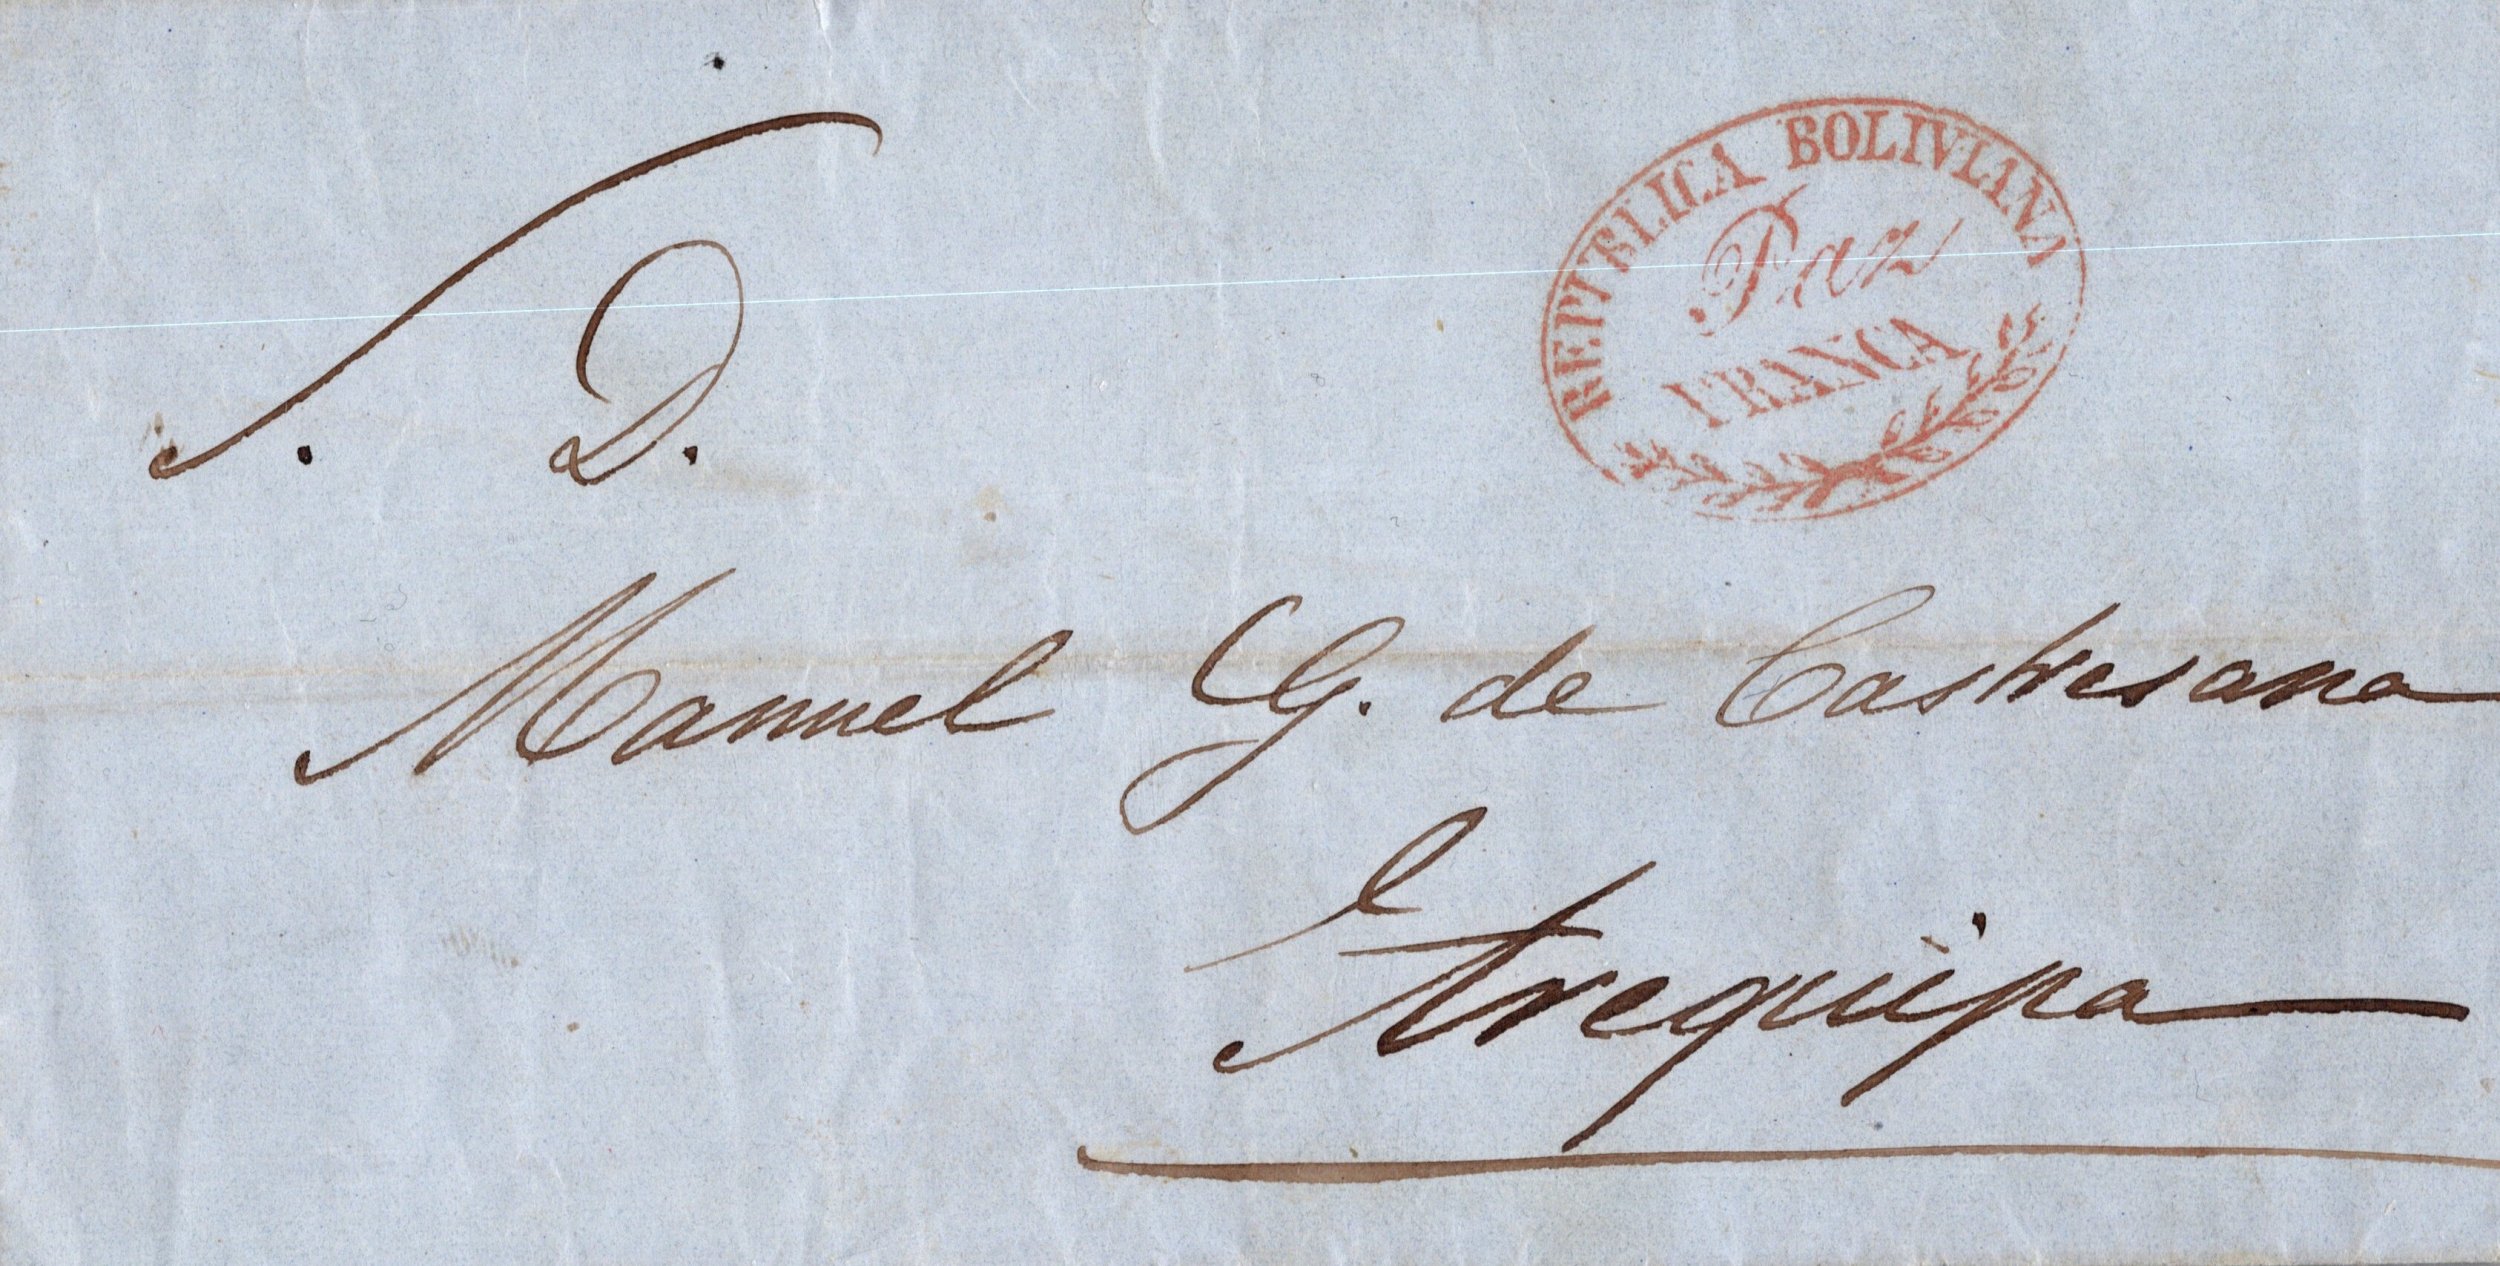 REPUBLICA BOLIVIANA
Paz
FRANCA
S. D.
Manuel G. de Castresana
Arequipa